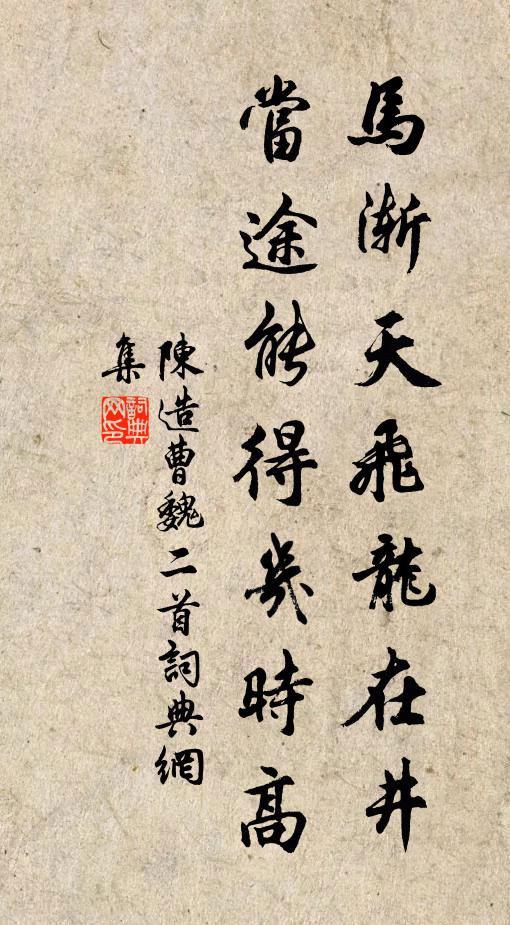 馬漸天飛龍在井
當途能得幾時高
陳造曹魏二首詞典網
集
詞典網印